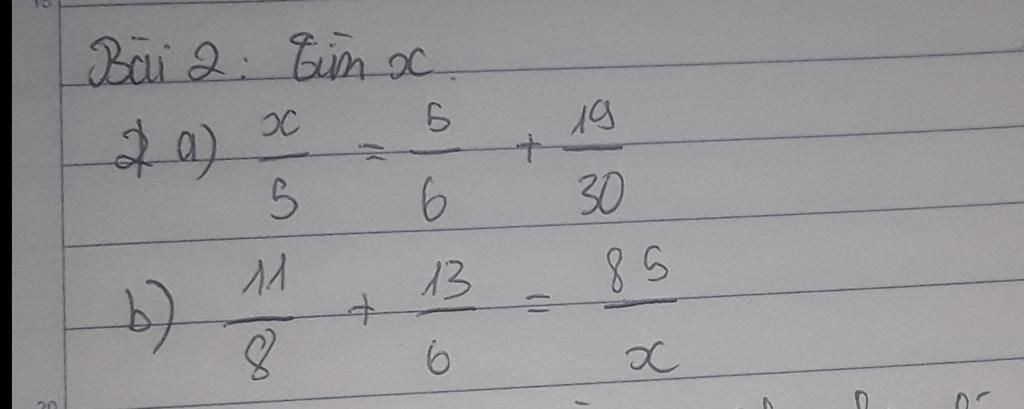 Bài 2: Tìm x.
a) x/5 = 5/6 + 19/30
b) 11/8 + 13/6 = 85/x